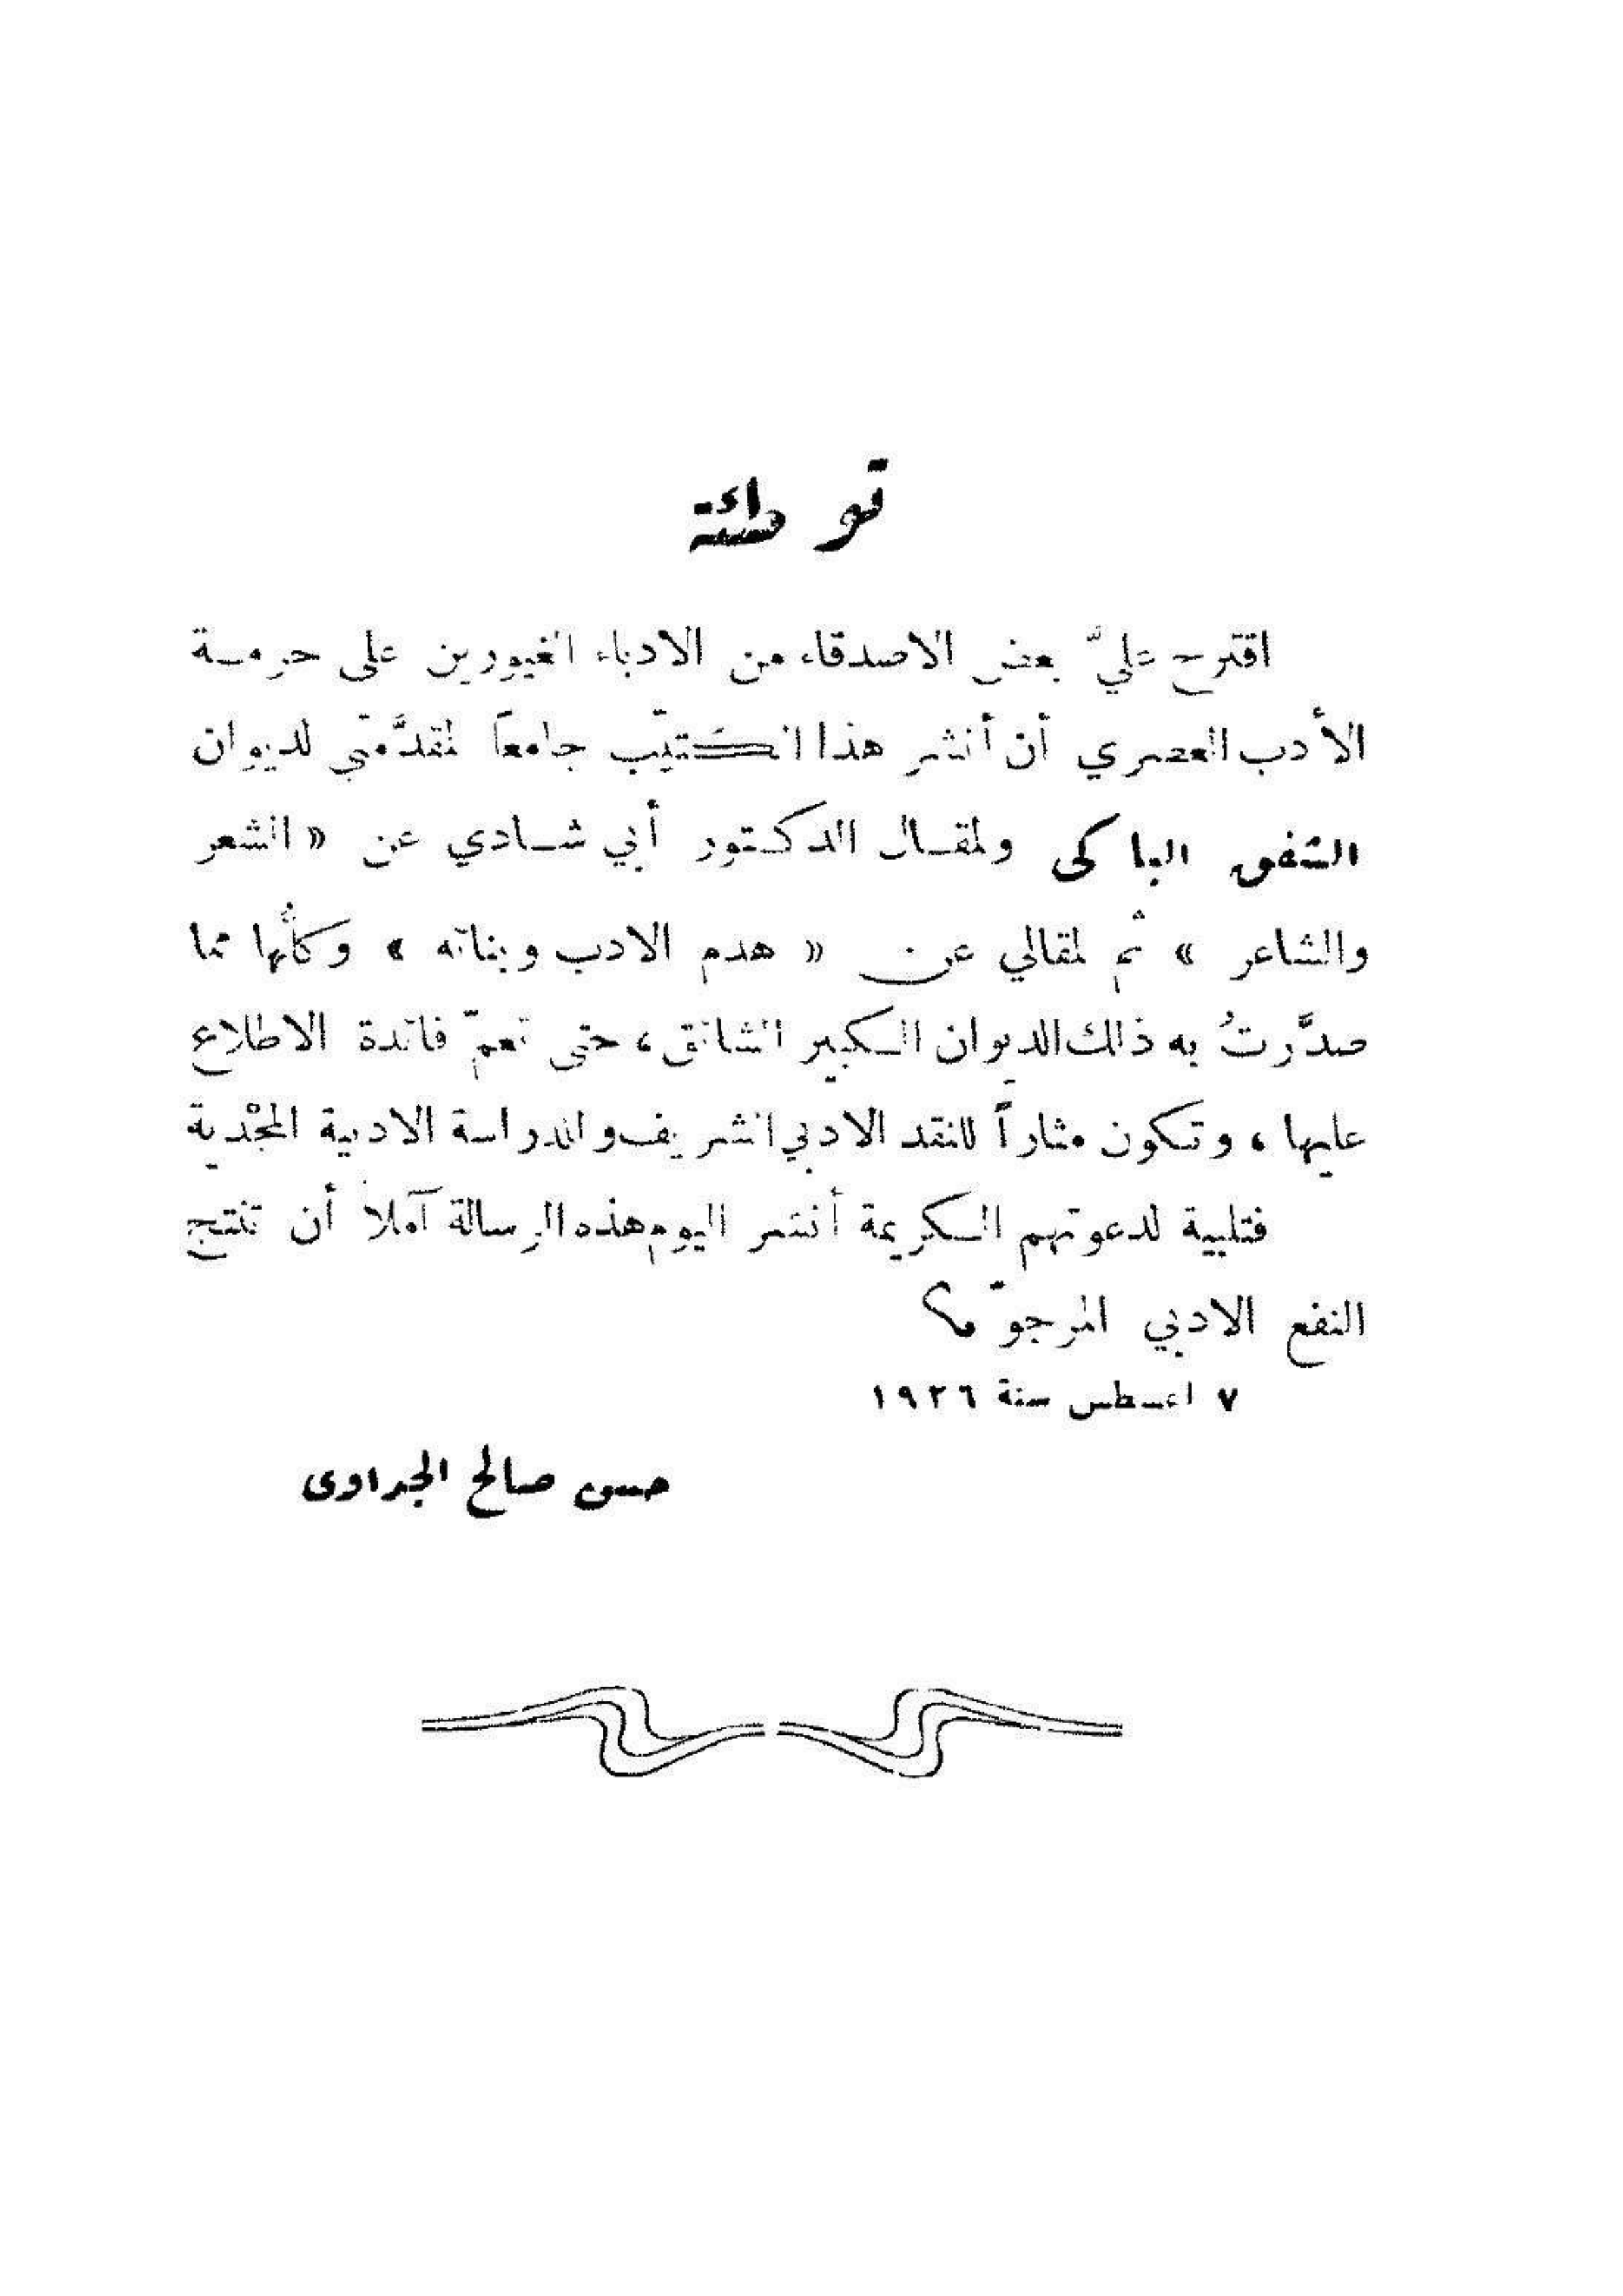 توطئة
اقترح عليَّ بعض الاصدقاء من الادباء الغيورين على حرمة
الأدب العصري أن أنشر هذا الكتيّب جامعاً لمقدَّمتي لديوان
الشفق الباكى ولمقال الدكتور أبي شادي عن « الشعر
والشاعر » ثم لمقالي عن « هدم الادب وبنائه » وكلُّها مما
صدَّرتُ به ذلك الديوان الكبير الشائق ، حتى تعمّ فائدة الاطلاع
عليها ، وتكون مثاراً للنقد الادبي الشريف والدراسة الادبية المجْدية
فتلبية لدعوتهم الكريمة أنشر اليوم هذه الرسالة آملاً أن تنتج
النفع الادبي المرجوّ
٧ اغسطس سنة ١٩٢٦
حسن صالح الجداوى